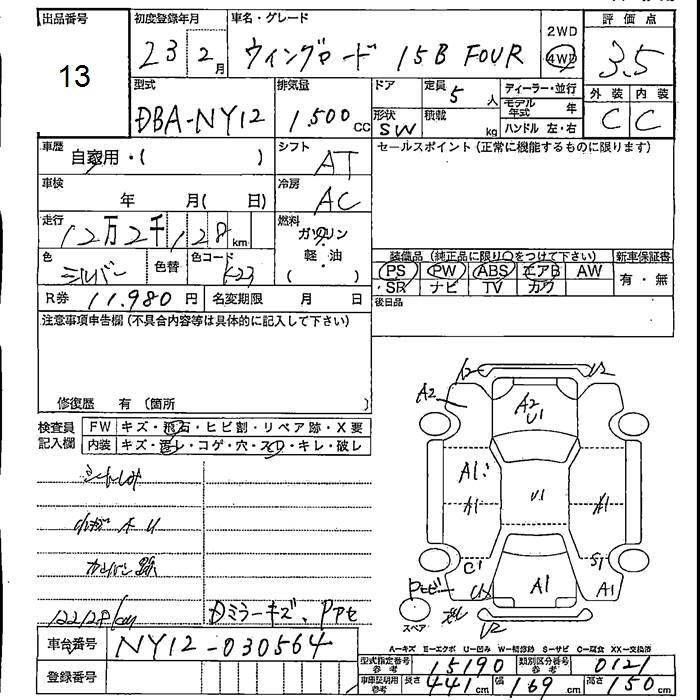 出品番号
13
初度登録年月
23 2月
車名・グレード
ウィングロード 15B FOUR
2WD
4WD
評価点
3.5
型式
DBA-NY12
排気量
1,500 CC
ドア
形状
SW
定員 5 人
積載 kg
ディーラー・並行
モデル年式 年
ハンドル 左・右
外装 内装
C C
車歴
自家用・( )
シフト
AT
セールスポイント(正常に機能するものに限ります)
車検
年 月( 日)
冷房
AC
走行
12万2千128km
燃料
ガソリン
軽・油
( )
色
シルバー
色替
色コード
K23
装備品(純正品に限り○をつけて下さい)
PS PW ABS エアB AW
SR ナビ TV カワ
新車保証書
有・無
R券 11,980円
名変期限 月 日
後日品
注意事項申告欄(不具合内容等は具体的に記入して下さい)
修復歴 有(箇所 )
検査員
記入欄
FW キズ・飛石・ヒビ割・リペア跡・X要
内装 キズ・汚レ・コゲ・穴・スレ・キレ・破レ
122128km
Dミラーキズ、
A2
A2
U1
A1
A1
U1
A1
C1
S1
A1
A1
U2
スペア
車台番号
NY12-030564
登録番号
A-キズ E-エクボ U-凹み W-補修跡 S-サビ C-腐食 XX-交換済
型式指定番号 参考 15190
類別区分番号 参考 0121
車庫証明用 参考
長さ 441cm
幅 169cm
高さ 150cm